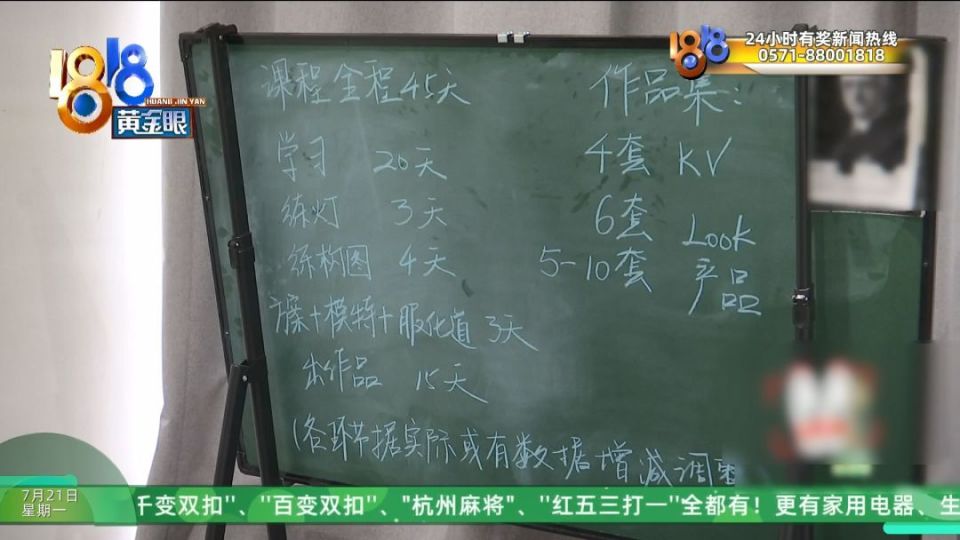 1818
HUANG JIN YAN
黄金眼
1818
24小时有奖新闻热线
0571-88001818
课程全程45天
学习 20天
练灯 3天
练构图 4天
方案+模特+服化道 3天
出作品 15天
(各环节据实际或有数据增减调整
作品集:
4套 KV
6套 Look
5-10套 产品
7月21日
星期一
千变双扣"、"百变双扣"、"杭州麻将"、"红五三打一"全都有！更有家用电器、生